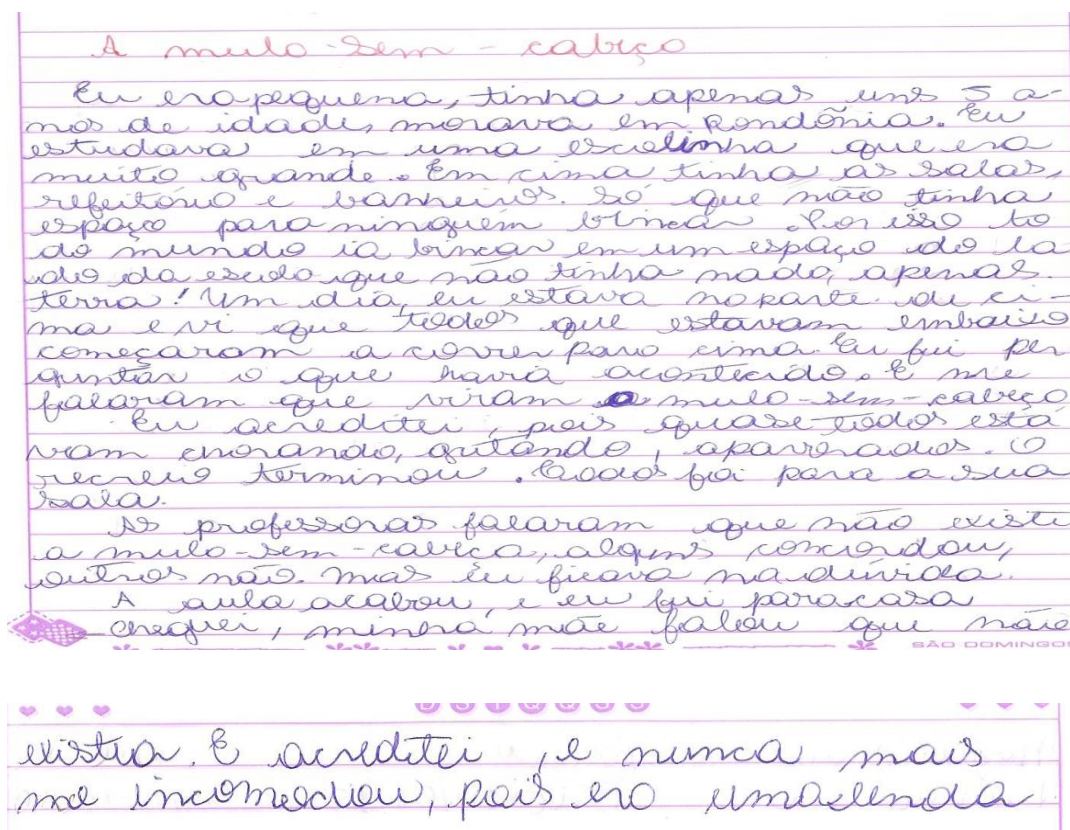 A mula-sem-cabeça
Eu era pequena, tinha apenas uns 5 a-
nos de idade, morava em Rondônia. Eu
estudava em uma escolinha que era
muito grande. Em cima tinha as salas,
refeitório e banheiros. Só que não tinha
espaço para ninguém brincar. Por isso to
do mundo ia brincar em um espaço do la
do da escola que não tinha nada, apenas
terra! Um dia, eu estava na parte de ci-
ma e vi que todos que estavam embaixo
começaram a correr para cima. Eu fui per
guntar o que havia acontecido. E me
falaram que viram a mula-sem-cabeça
Eu acreditei, pois quase todos esta
vam chorando, gritando, apavorados. O
recreio terminou. Todos foi para a sua
sala.
As professoras falaram que não existe
a mula-sem-cabeça, alguns concordou,
outros não. Mas eu ficava na dúvida.
A aula acabou, e eu fui para casa
cheguei, minha mãe falou que não
SÃO DOMINGOS
existia. E acreditei, e nunca mais
me incomodou, pois era uma lenda